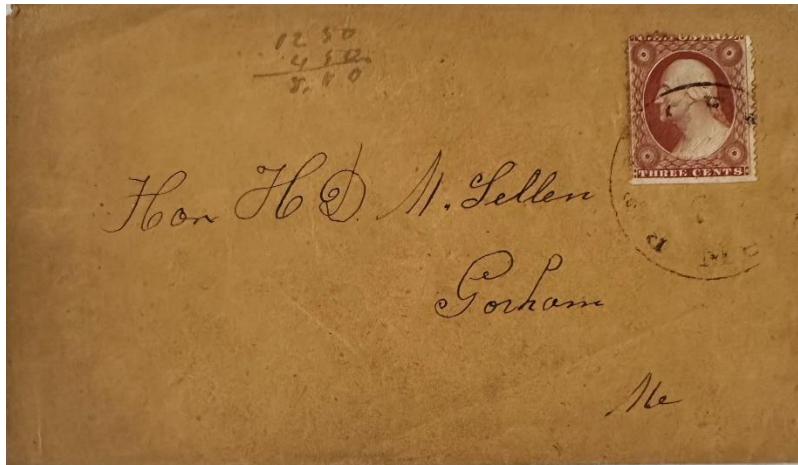 12 50
4 50
8,00
THREE CENTS
Hon H D. M. Lellen
Gorham
Me